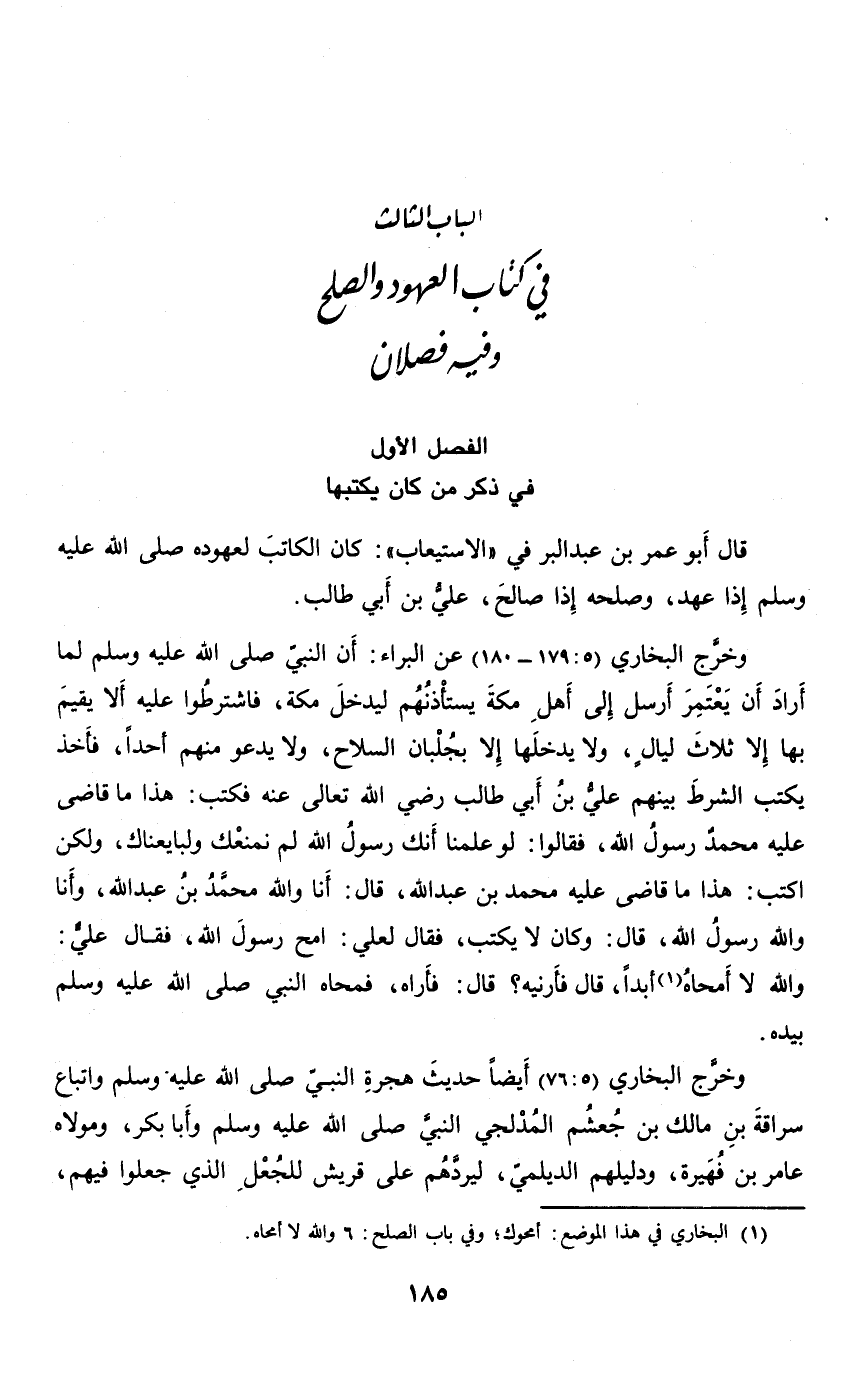 الباب الثالث
في كتاب العهود والصلح
وفيه فصلان
الفصل الأول
في ذكر من كان يكتبها
قال أَبو عمر بن عبدالبر في «الاستيعاب»: كان الكاتبَ لعهوده صلى الله عليه
وسلم إِذا عهد، وصلحه إِذا صالحَ، عليُّ بن أَبي طالب.
وخرَّج البخاري (٥: ١٧٩ ــ ١٨٠) عن البراء: أَن النبيّ صلى الله عليه وسلم لما
أَرادَ أَن يَعْتَمِرَ أَرسل إِلى أَهلِ مكةَ يستأْذنُهُم ليدخلَ مكة، فاشترطُوا عليه أَلا يقيمَ
بها إِلا ثلاثَ ليالٍ، ولا يدخلَها إِلا بجُلْبان السلاح، ولا يدعو منهم أحداً، فأَخذ
يكتب الشرطَ بينهم عليُّ بنُ أَبي طالب رضي الله تعالى عنه فكتب: هذا ما قاضى
عليه محمدٌ رسولُ الله، فقالوا: لو علمنا أَنك رسولُ الله لم نمنعْك ولبايعناك، ولكن
اكتب: هذا ما قاضى عليه محمد بن عبدالله، قال: أَنا والله محمَّدُ بنُ عبدالله، وأَنا
والله رسولُ الله، قال: وكان لا يكتب، فقال لعلي: امح رسولَ الله، فقال عليُّ:
والله لا أَمحاهُ(١) أبداً، قال فأَرنيه؟ قال: فأَراه، فمحاه النبي صلى الله عليه وسلم
بيده.
وخرَّج البخاري (٥: ٧٦) أَيضاً حديثَ هجرةِ النبيّ صلى الله عليه وسلم واتباع
سراقةَ بنِ مالك بن جُعشُم المُدْلجي النبيَّ صلى الله عليه وسلم وأَبا بكر، ومولاه
عامر بن فُهَيرة، ودليلهم الديلميّ، ليردَّهُم على قريش للجُعْلِ الذي جعلوا فيهم،
(١) البخاري في هذا الموضع: أمحوك؛ وفي باب الصلح: ٦ والله لا أمحاه.
١٨٥